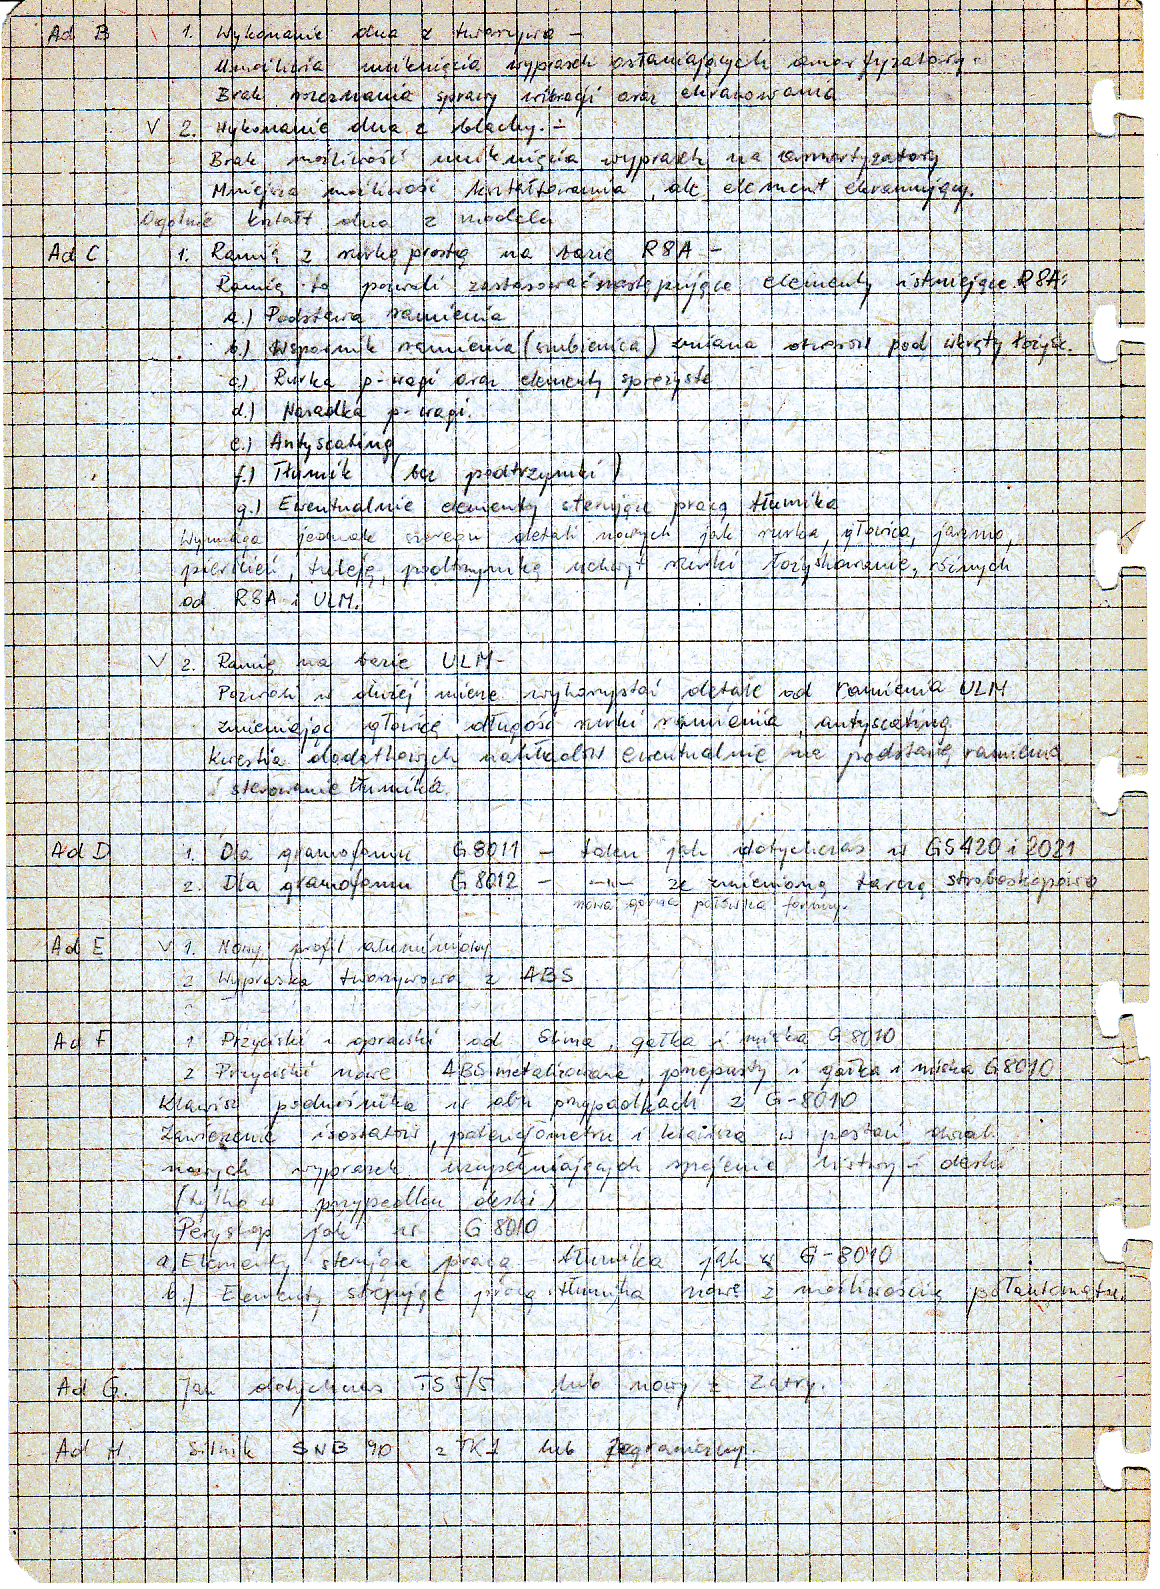 Ad B 1. Wykonanie dna z tworzywa –
Umożliwia uniknięcia wyprasek osłaniających amortyzatory.
Brak rozeznania sprawy wibracji oraz ekranowania
V 2. Wykonanie dna z blachy. –
Brak możliwości uniknięcia wyprasek na amortyzatory
Mniejsza możliwość kształtowania, ale element ekranujący.
Ogólnie kształt dna z modelu
Ad C 1. Ramię z rurką prostą na bazie R8A –
Ramię to pozwoli zastosować następujące elementy istniejące R8A:
a.) Podstawa ramienia
b.) Wspornik ramienia (szubienica) zmiana otworów pod wkręty łożysk.
c.) Rurka p-wagi oraz elementy sprężyste
d.) Nasadka p-wagi.
e.) Antyscating
f.) Tłumik (bez podtrzymki)
g.) Ewentualnie elementy sterujące pracą tłumika
Wymaga jednak szeregu detali nowych jak rurka, głowica, jarzmo,
pierścień, tuleję, podtrzymkę uchwyt rurki łożyskowanie, różnych
od R8A i ULM.
V 2. Ramię na bazie ULM –
Pozwoli w dużej mierze wykorzystać detale od ramienia ULM
zmieniając głowicę, długość rurki ramienia, antyscating
Kwestia dodatkowych nakładów ewentualnie na podstawę ramienia
i sterowanie tłumika.
Ad D 1. Dla gramofonu G8011 – talerz jak dotychczas w GS420 i 2021
2. Dla gramofonu G8012 – –"– ze zmienioną tarczą stroboskopową
nowa górna połówka formy.
Ad E V 1. Nowy profil aluminiowy
2 Wypraska tworzywowa z ABS
Ad F 1 Przyciski i oprawki od Slima, gałka i miska G8010
2 Przyciski nowe ABS metalizowane, przepusty i gałka i miska G8010
Klawisz podnośnika w obu przypadkach z G-8010
Zawieszenie isostatów, potencjometru i klawisza w postaci
nowych wyprasek uzupełniających spojenie listwy i deski
(tylko w przypadku deski)
Peryskop jak w G8010
a) Elementy sterujące pracą tłumika jak w G-8010
b.) Elementy sterujące pracą tłumika nowe z możliwością półautomatu.
Ad G. Jak dotychczas TS 5/5 lub nowy z Zatry.
Ad H Silnik SNB 90 z TK1 lub zagraniczny.